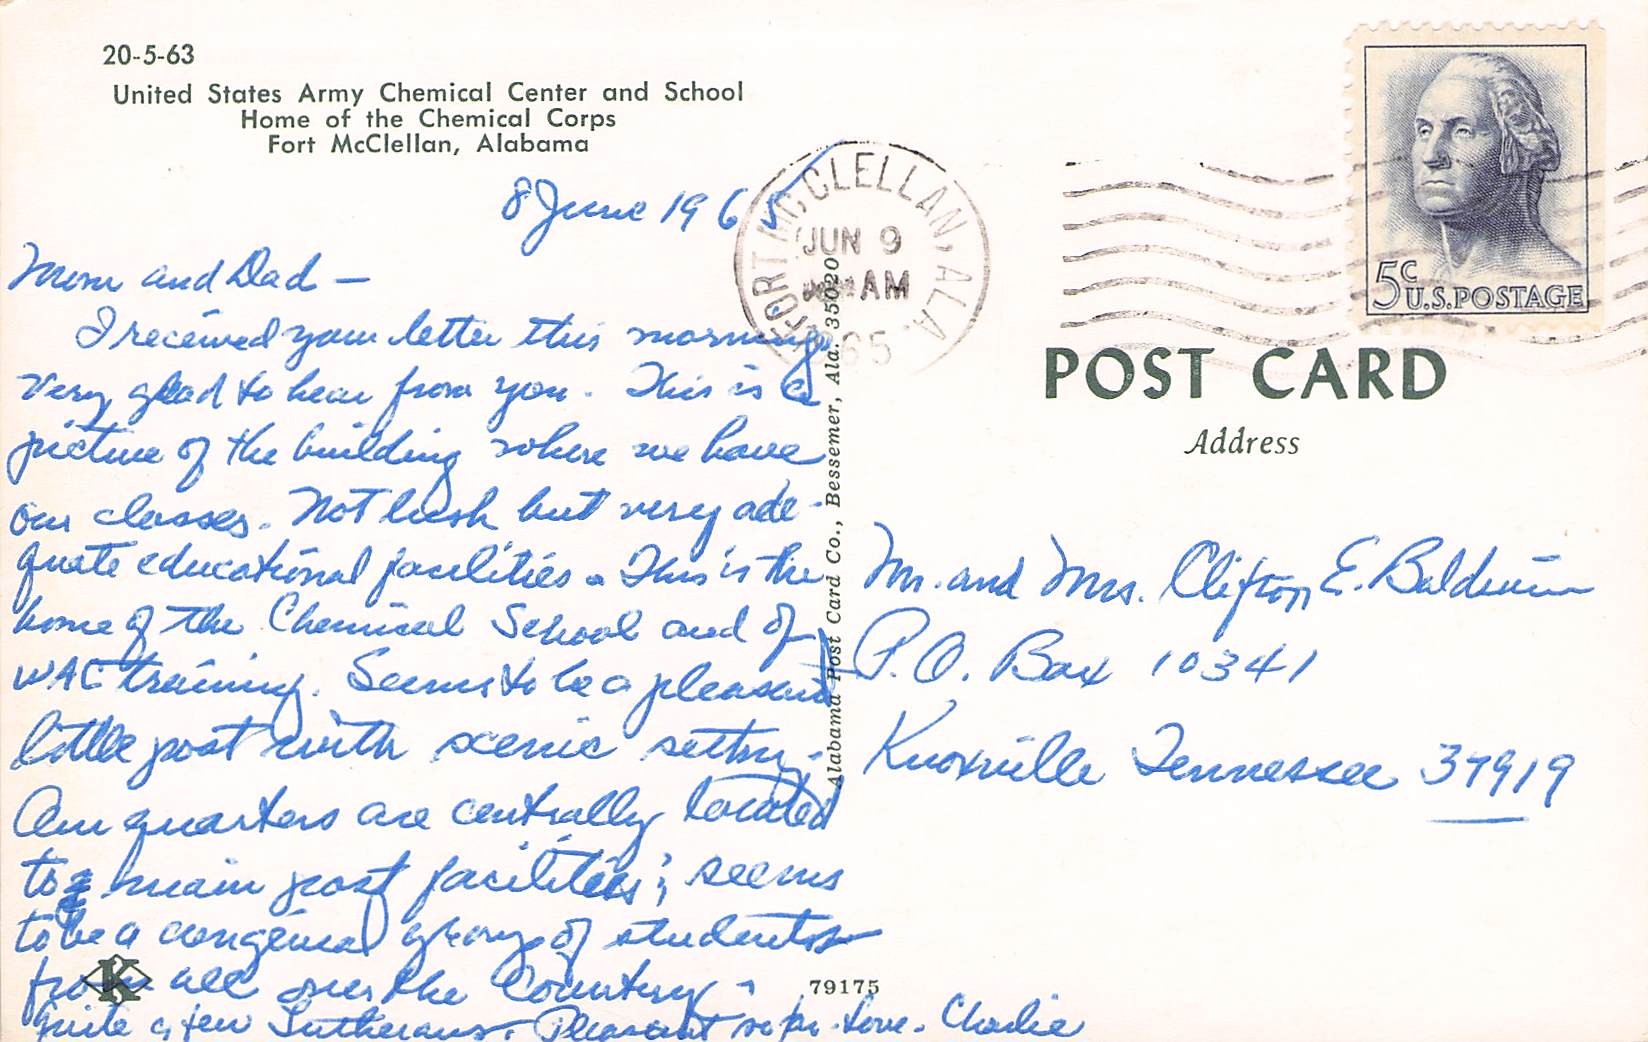 20-5-63
United States Army Chemical Center and School
Home of the Chemical Corps
Fort McClellan, Alabama
8 June 1965
Mom and Dad —
I received your letter this morning
Very glad to hear from you. This is a
picture of the building where we have
our classes. Not lush but very ade-
quate educational facilities. This is the
home of the Chemical School and of
WAC training. Seems to be a pleasant
little post with scenic setting.
Our quarters are centrally located
to main post facilities; seems
to be a congenial group of students
from all over the Country -
quite a few Lutherans. Pleasant so far. Love. Charlie
K
79175
Alabama Post Card Co., Bessemer, Ala. 35020
FORT MCCLELLAN, ALA.
JUN 9
AM
1965
5c
U.S. POSTAGE
POST CARD
Address
Mr. and Mrs. Clifton E. Baldwin
P.O. Box 10341
Knoxville Tennessee 37919